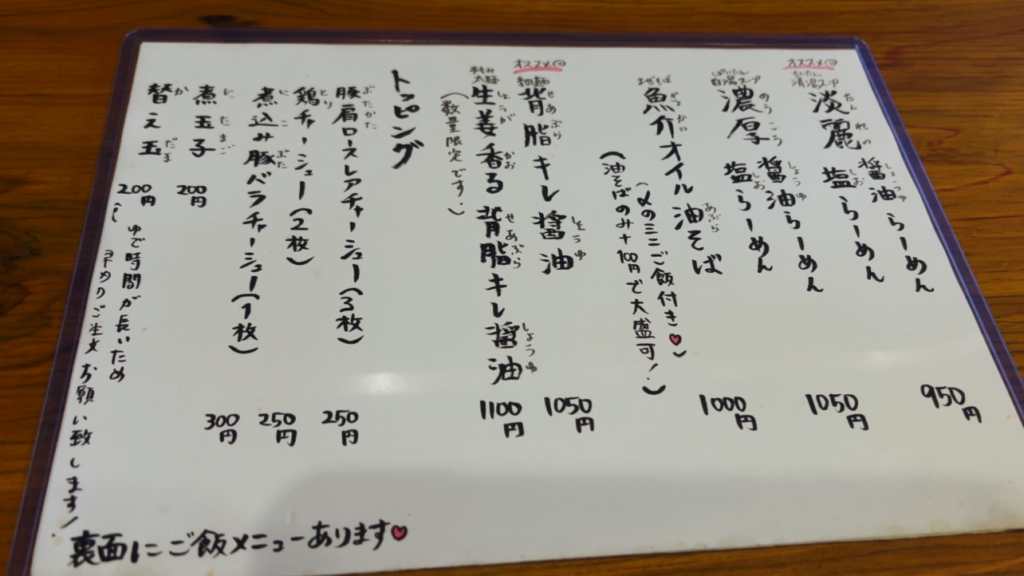 オススメ
清湯スープ
淡麗 醤油らーめん
塩らーめん
950円
白湯スープ
濃厚 醤油らーめん
塩らーめん
1050円
まぜそば
魚介オイル油そば
(〆のミニご飯付き♥)
(油そばのみ+100円で大盛可!)
1000円
オススメ
細麺
背脂キレ醤油
1050円
太麺
生姜香る背脂キレ醤油
(数量限定です!)
1100円
トッピング
豚肩ロースレアチャーシュー(3枚)
250円
鶏チャーシュー(2枚)
250円
煮込み豚バラチャーシュー(1枚)
300円
煮玉子
200円
替え玉
200円
ゆで時間が長いため
早めのご注文お願い致します!
裏面にご飯メニューあります♥